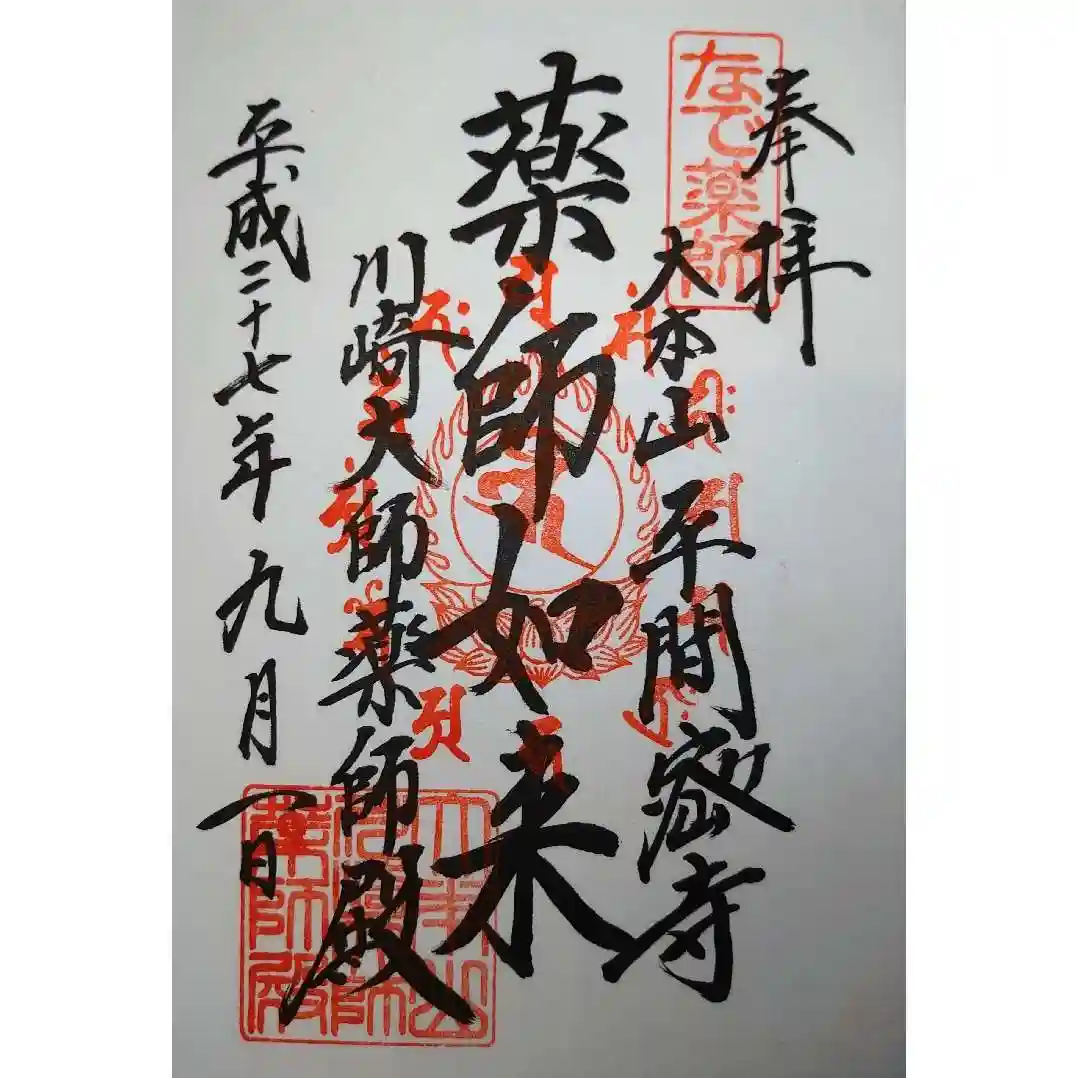 奉拝
なで薬師
大本山平間密寺
薬師如来
川崎大師薬師殿
平成二十七年九月一日
大本山
川崎大師
薬師殿